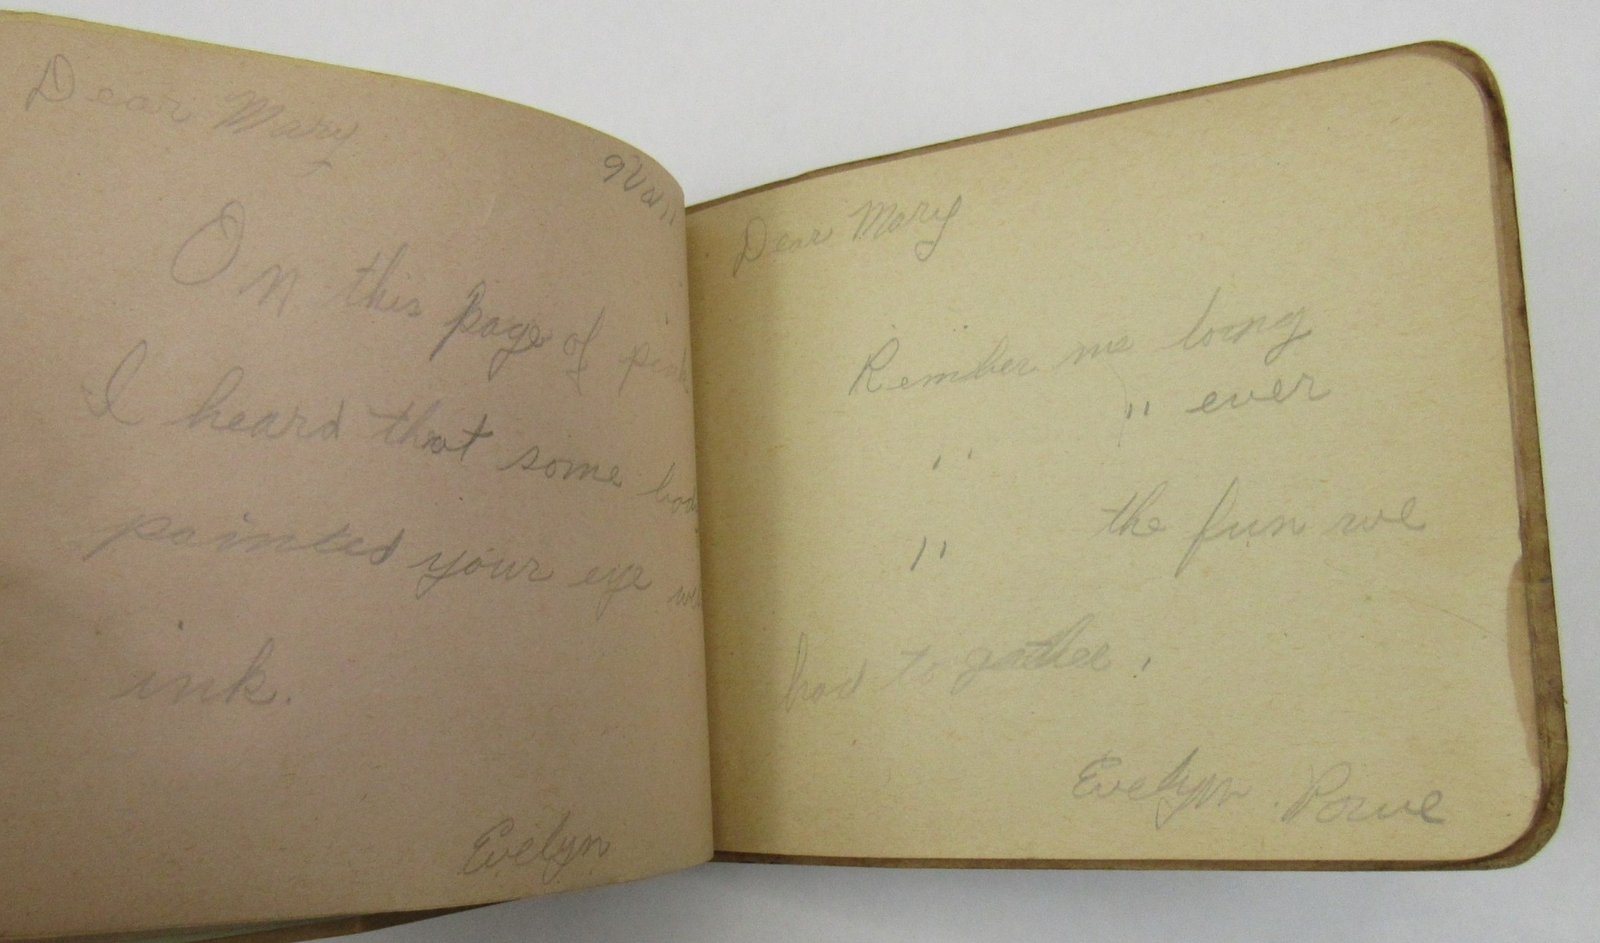 Dear Mary
Nov 11
On this page of pink
I heard that some bod
painted your eye wi
ink.
Evelyn
Dear Mary
Rember me long
" " ever
" the fun we
had to gather.
Evelyn Rowe